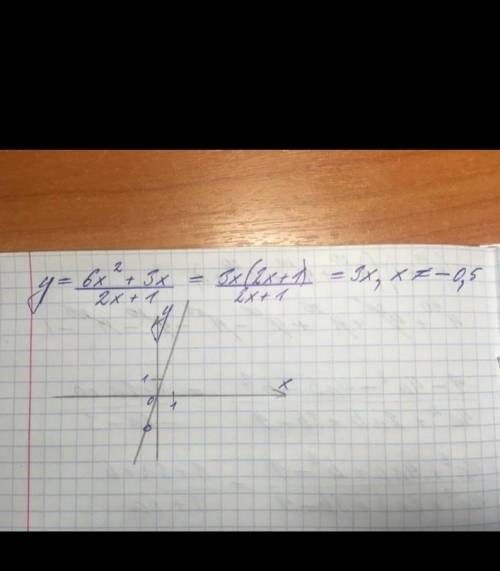 y = (6x² + 3x)/(2x + 1) = 3x(2x+1)/(2x+1) = 3x, x ≠ -0,5
y
1
x
0
1